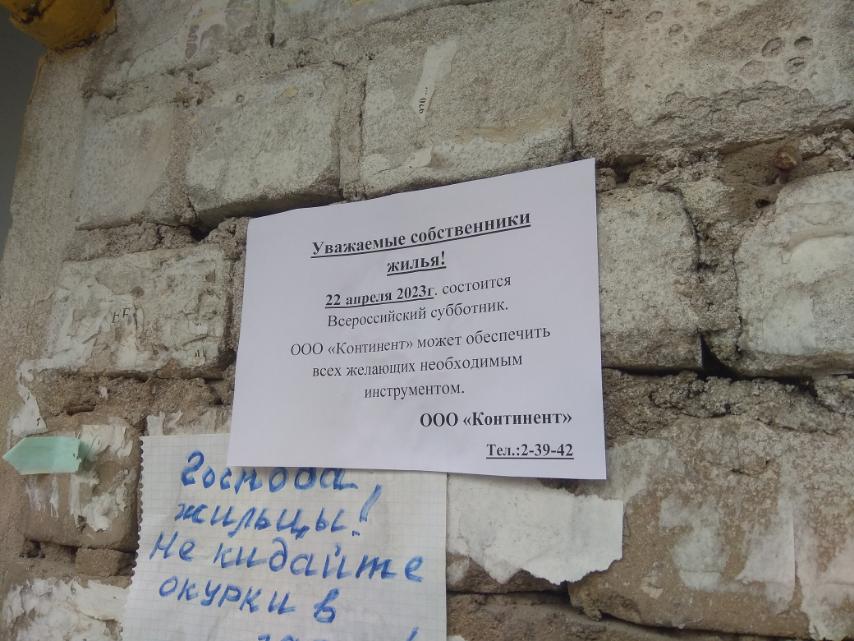 Уважаемые собственники
жилья!
22 апреля 2023г. состоится
Всероссийский субботник.
ООО «Континент» может обеспечить
всех желающих необходимым
инструментом.
ООО «Континент»
Тел.:2-39-42
Господа
жильцы!
Не кидайте
окурки в